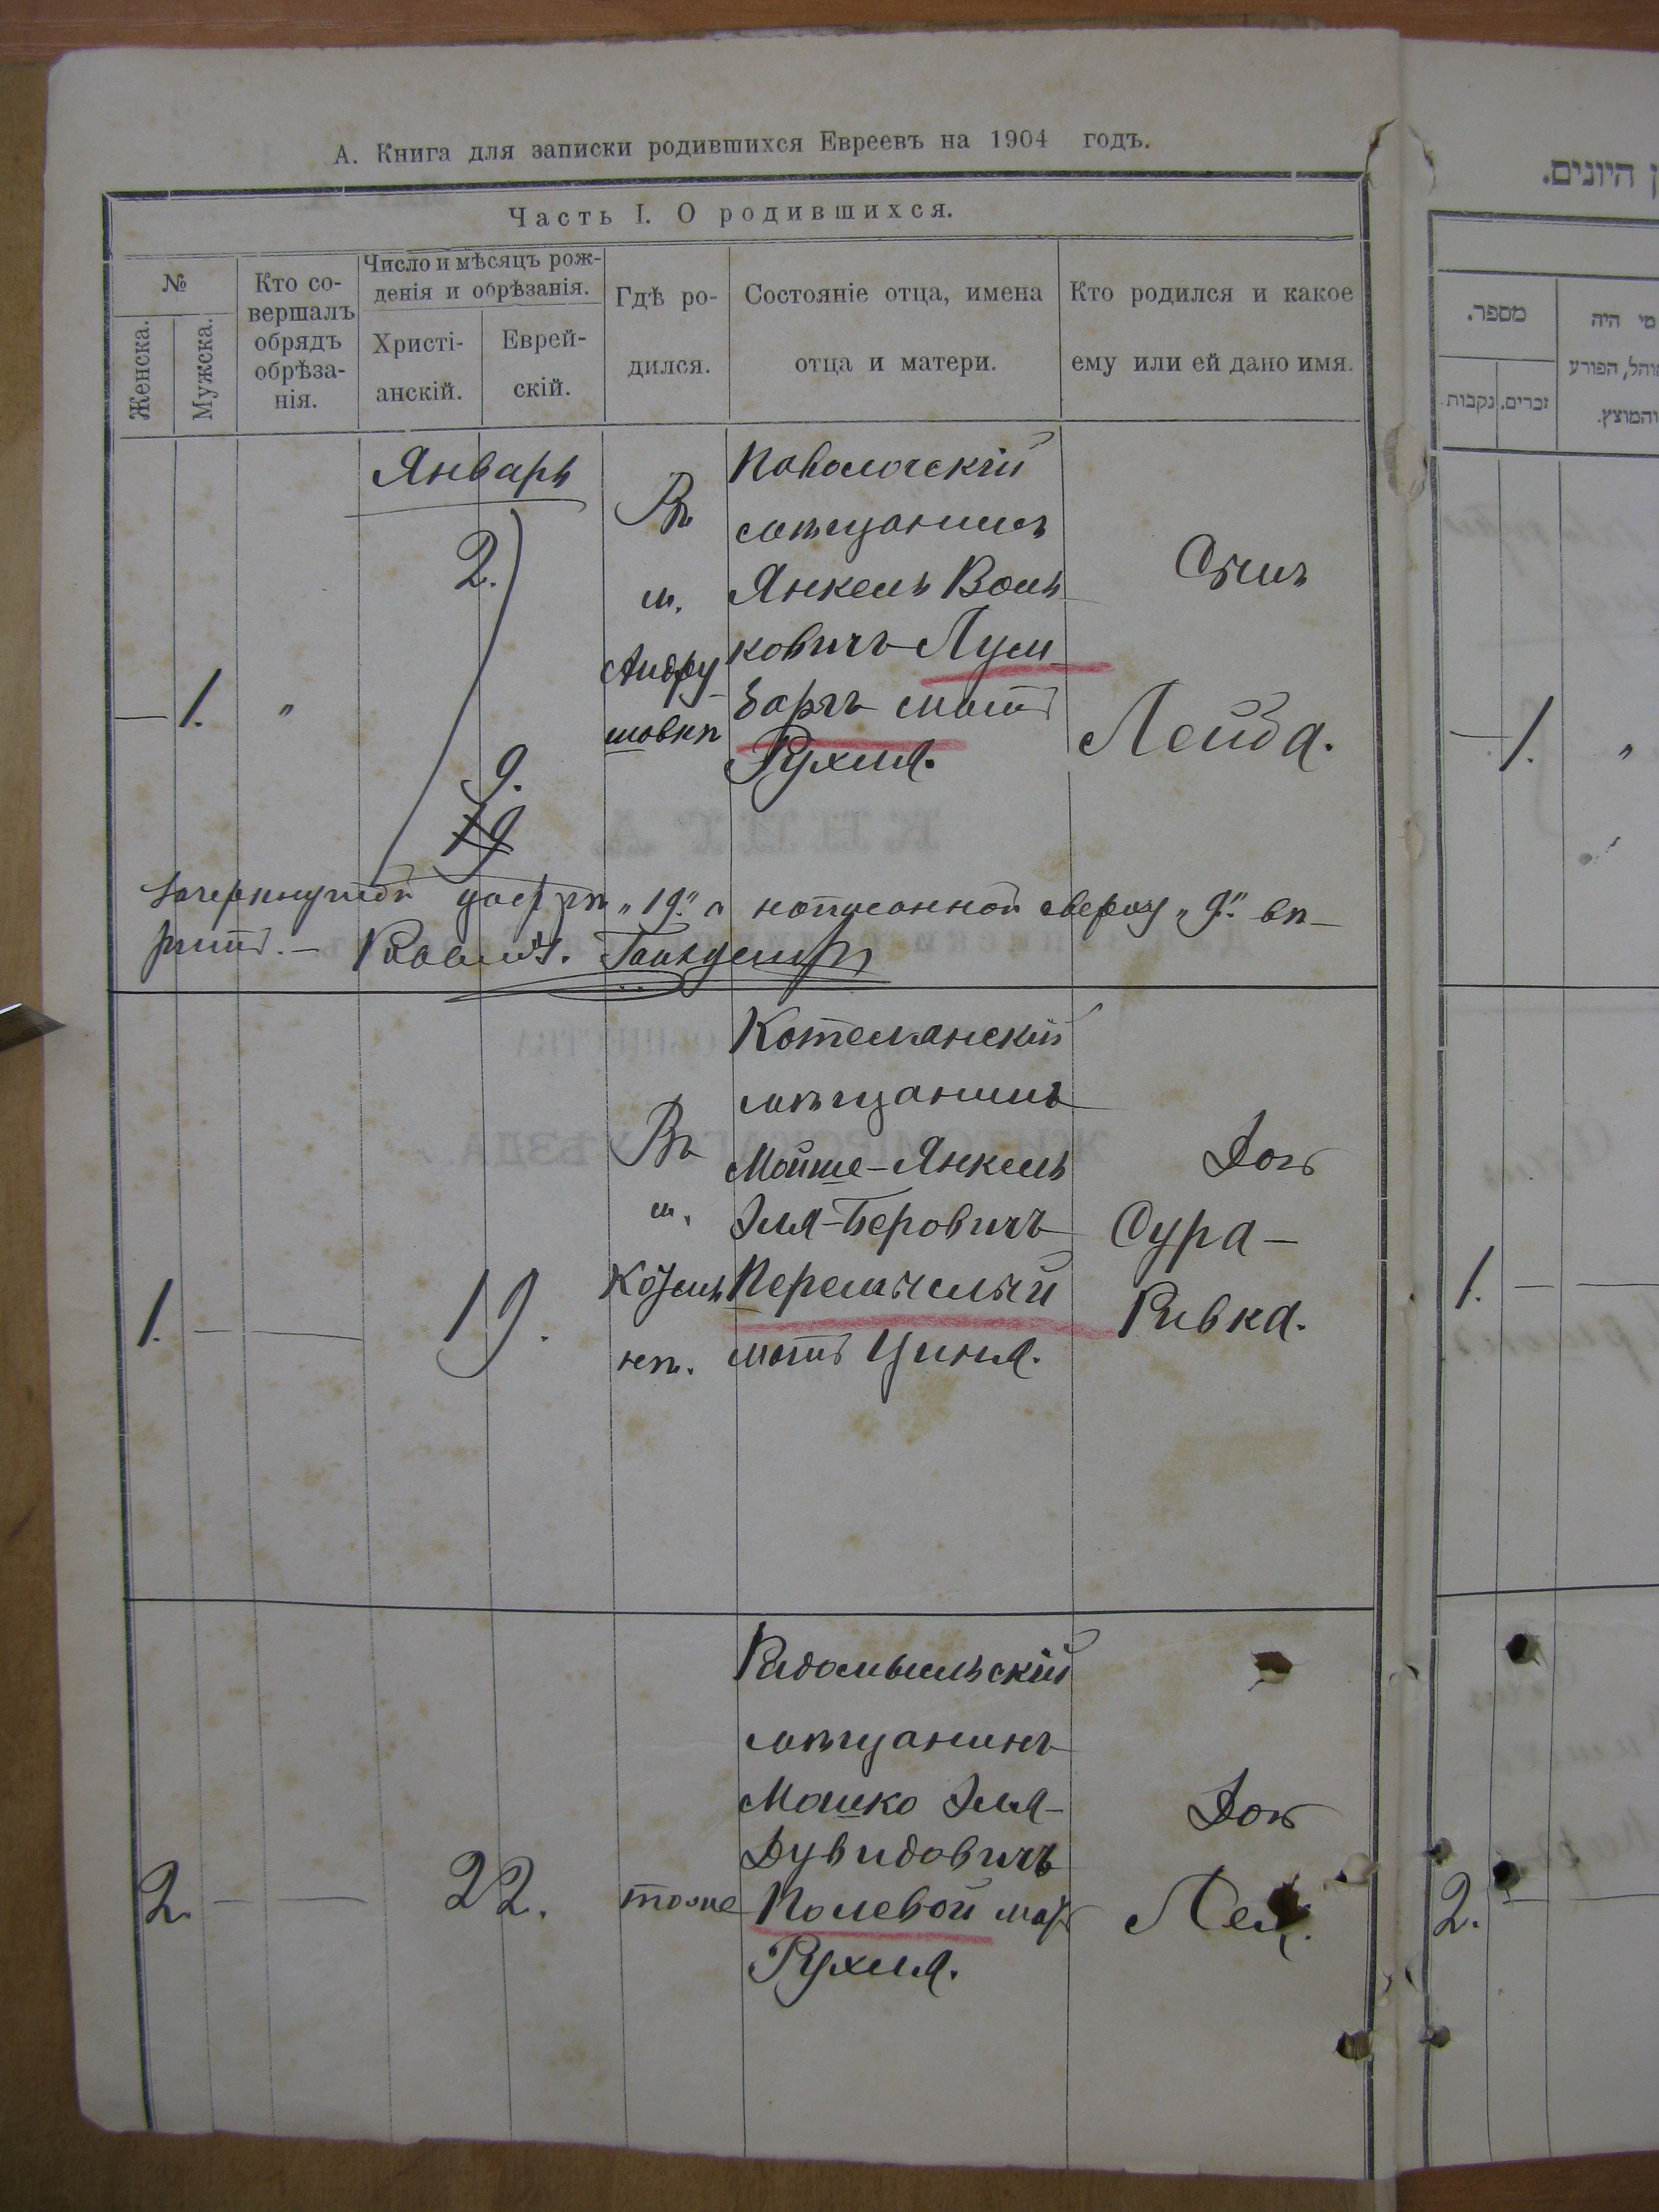 А. Книга для записки родившихся Евреевъ на 1904 годъ.
Часть I. О родившихся.
№
Женска.
Мужска.
Кто со-
вершалъ
обрядъ
обрѣза-
нія.
Число и мѣсяцъ рож-
денія и обрѣзанія.
Христі-
анскій.
Еврей-
скій.
Гдѣ ро-
дился.
Состояніе отца, имена
отца и матери.
Кто родился и какое
ему или ей дано имя.
Январь
— 1. „
2.
9.
19
Въ
м.
Андру
шовкѣ
Паволочскій
мѣщанинъ
Янкель Воль
ковичъ Лум
баргъ мать
Рухля.
Сынъ
Лейба.
Зачеркнутой цифрѣ „19„ а написанной сверху „9„ вѣ-
рить. — Раввинъ.
1. — —
19.
Въ
м.
Котелянскій
мѣщанинъ
Мойше-Янкель
Эля-Беровичъ
мать Циня.
Дочь
Сура-
Ривка.
2. — —
22.
тоже
Радомысльскій
мѣщанинъ
Мошко Эля-
Дувидовичъ
Полевой мать
Рухля.
Дочь
ן היונים.
מספר.
זכרים.
נקבות.
מי היה
המוהל, הפורע
והמוצץ.
— 1. „
1. — —
2. —